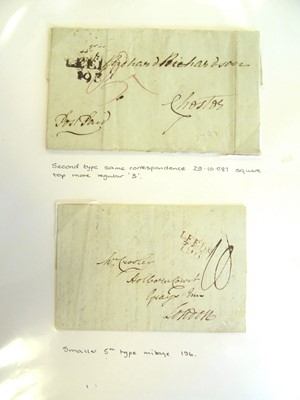 LEEDS
193
Richard Richardson
Chester
Post Paid
Second type same correspondence 29-10-1787 square
top more regular '3'.
LEEDS
Mr Crosley
Holborn Court
Grays Inn
London
Smaller 5th type milage 196.